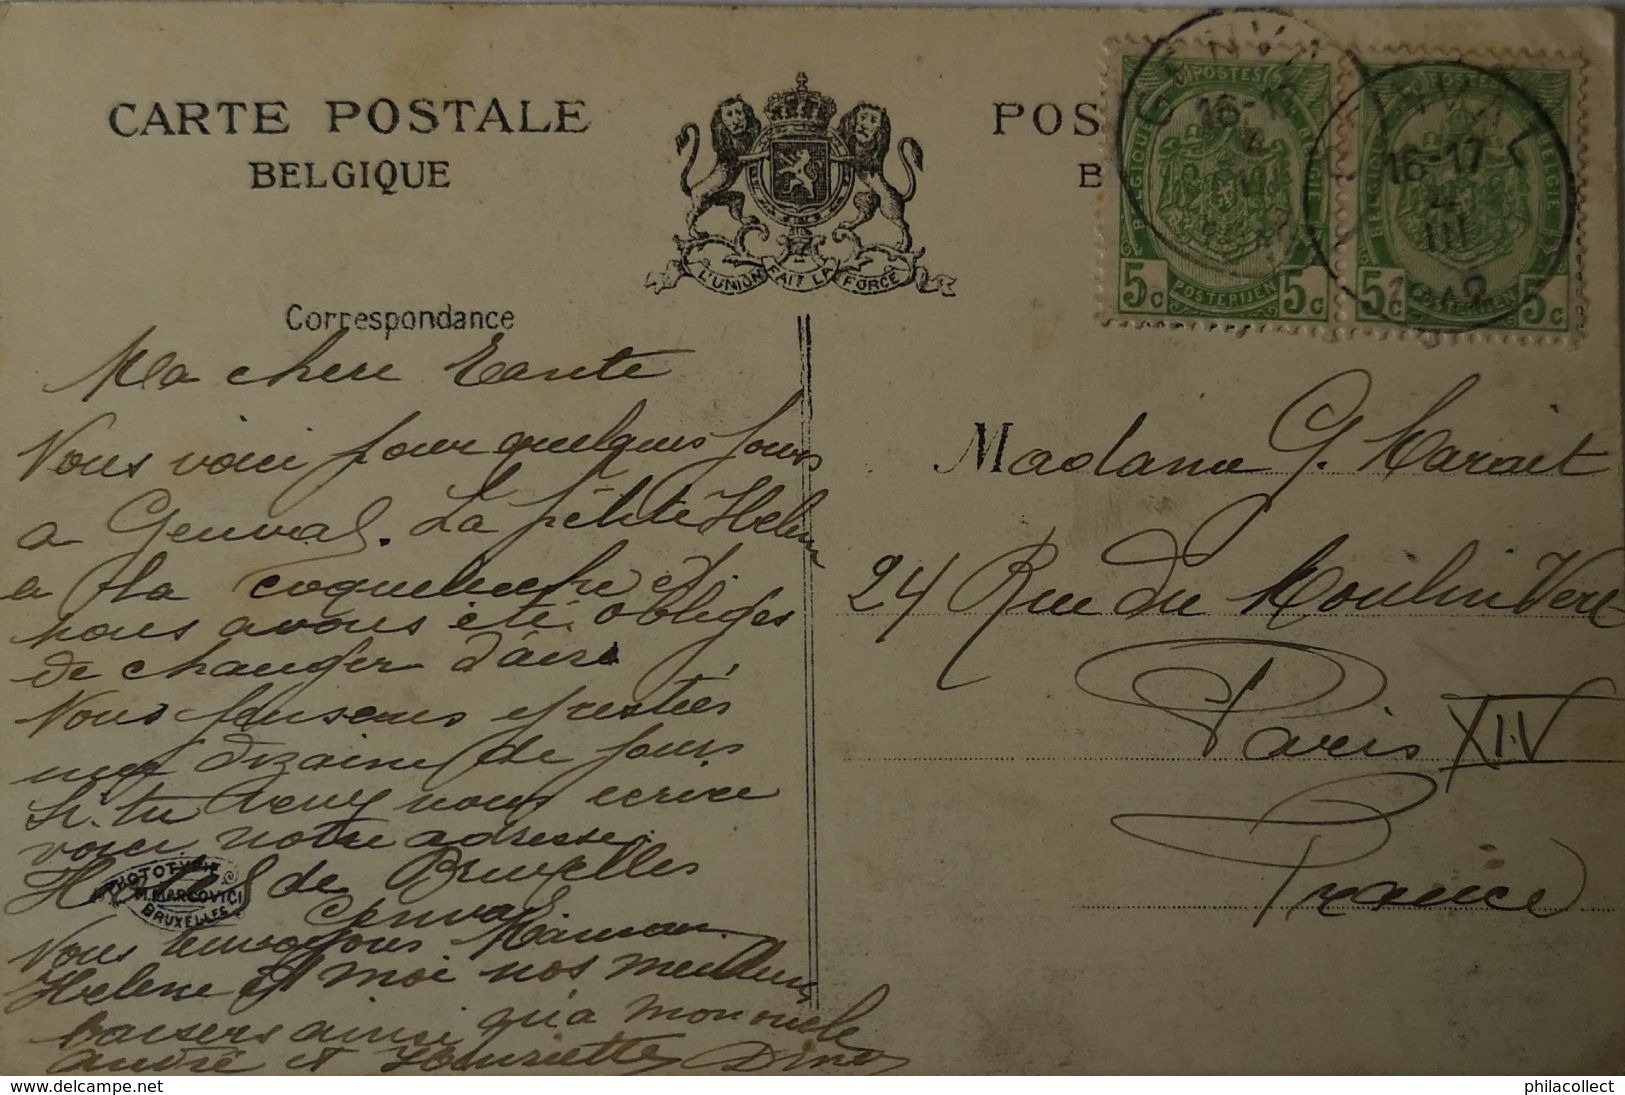 CARTE POSTALE
BELGIQUE
POS
B
L'UNION FAIT LA FORCE
POSTES
BELGIQUE
BELGIE
5c POSTERIJEN 5c
POSTES
BELGIQUE
BELGIE
5c POSTERIJEN 5c
GENVAL
16-17
2
III
Correspondance
Ma chere Tante
Nous voici pour quelques jours
a Genval. La pétite Helene
a la coqueluche et
nous avons été obligés
de changer d'aire
Nous pensons y rester
une dizaine de jours
Si tu veux nous ecrire
voici notre adresse
Hotel de Bruxelles
Genval
Nous envoyons Maman
Helene et moi nos meilleurs
baisers ainsi qu'a mon oncle
André et Henriette
PHOTOTYPIE
M. MARCOVICI
BRUXELLES
Madame G. Marait
24 Rue du Moulin Vert
Paris XIV
France
philacollect